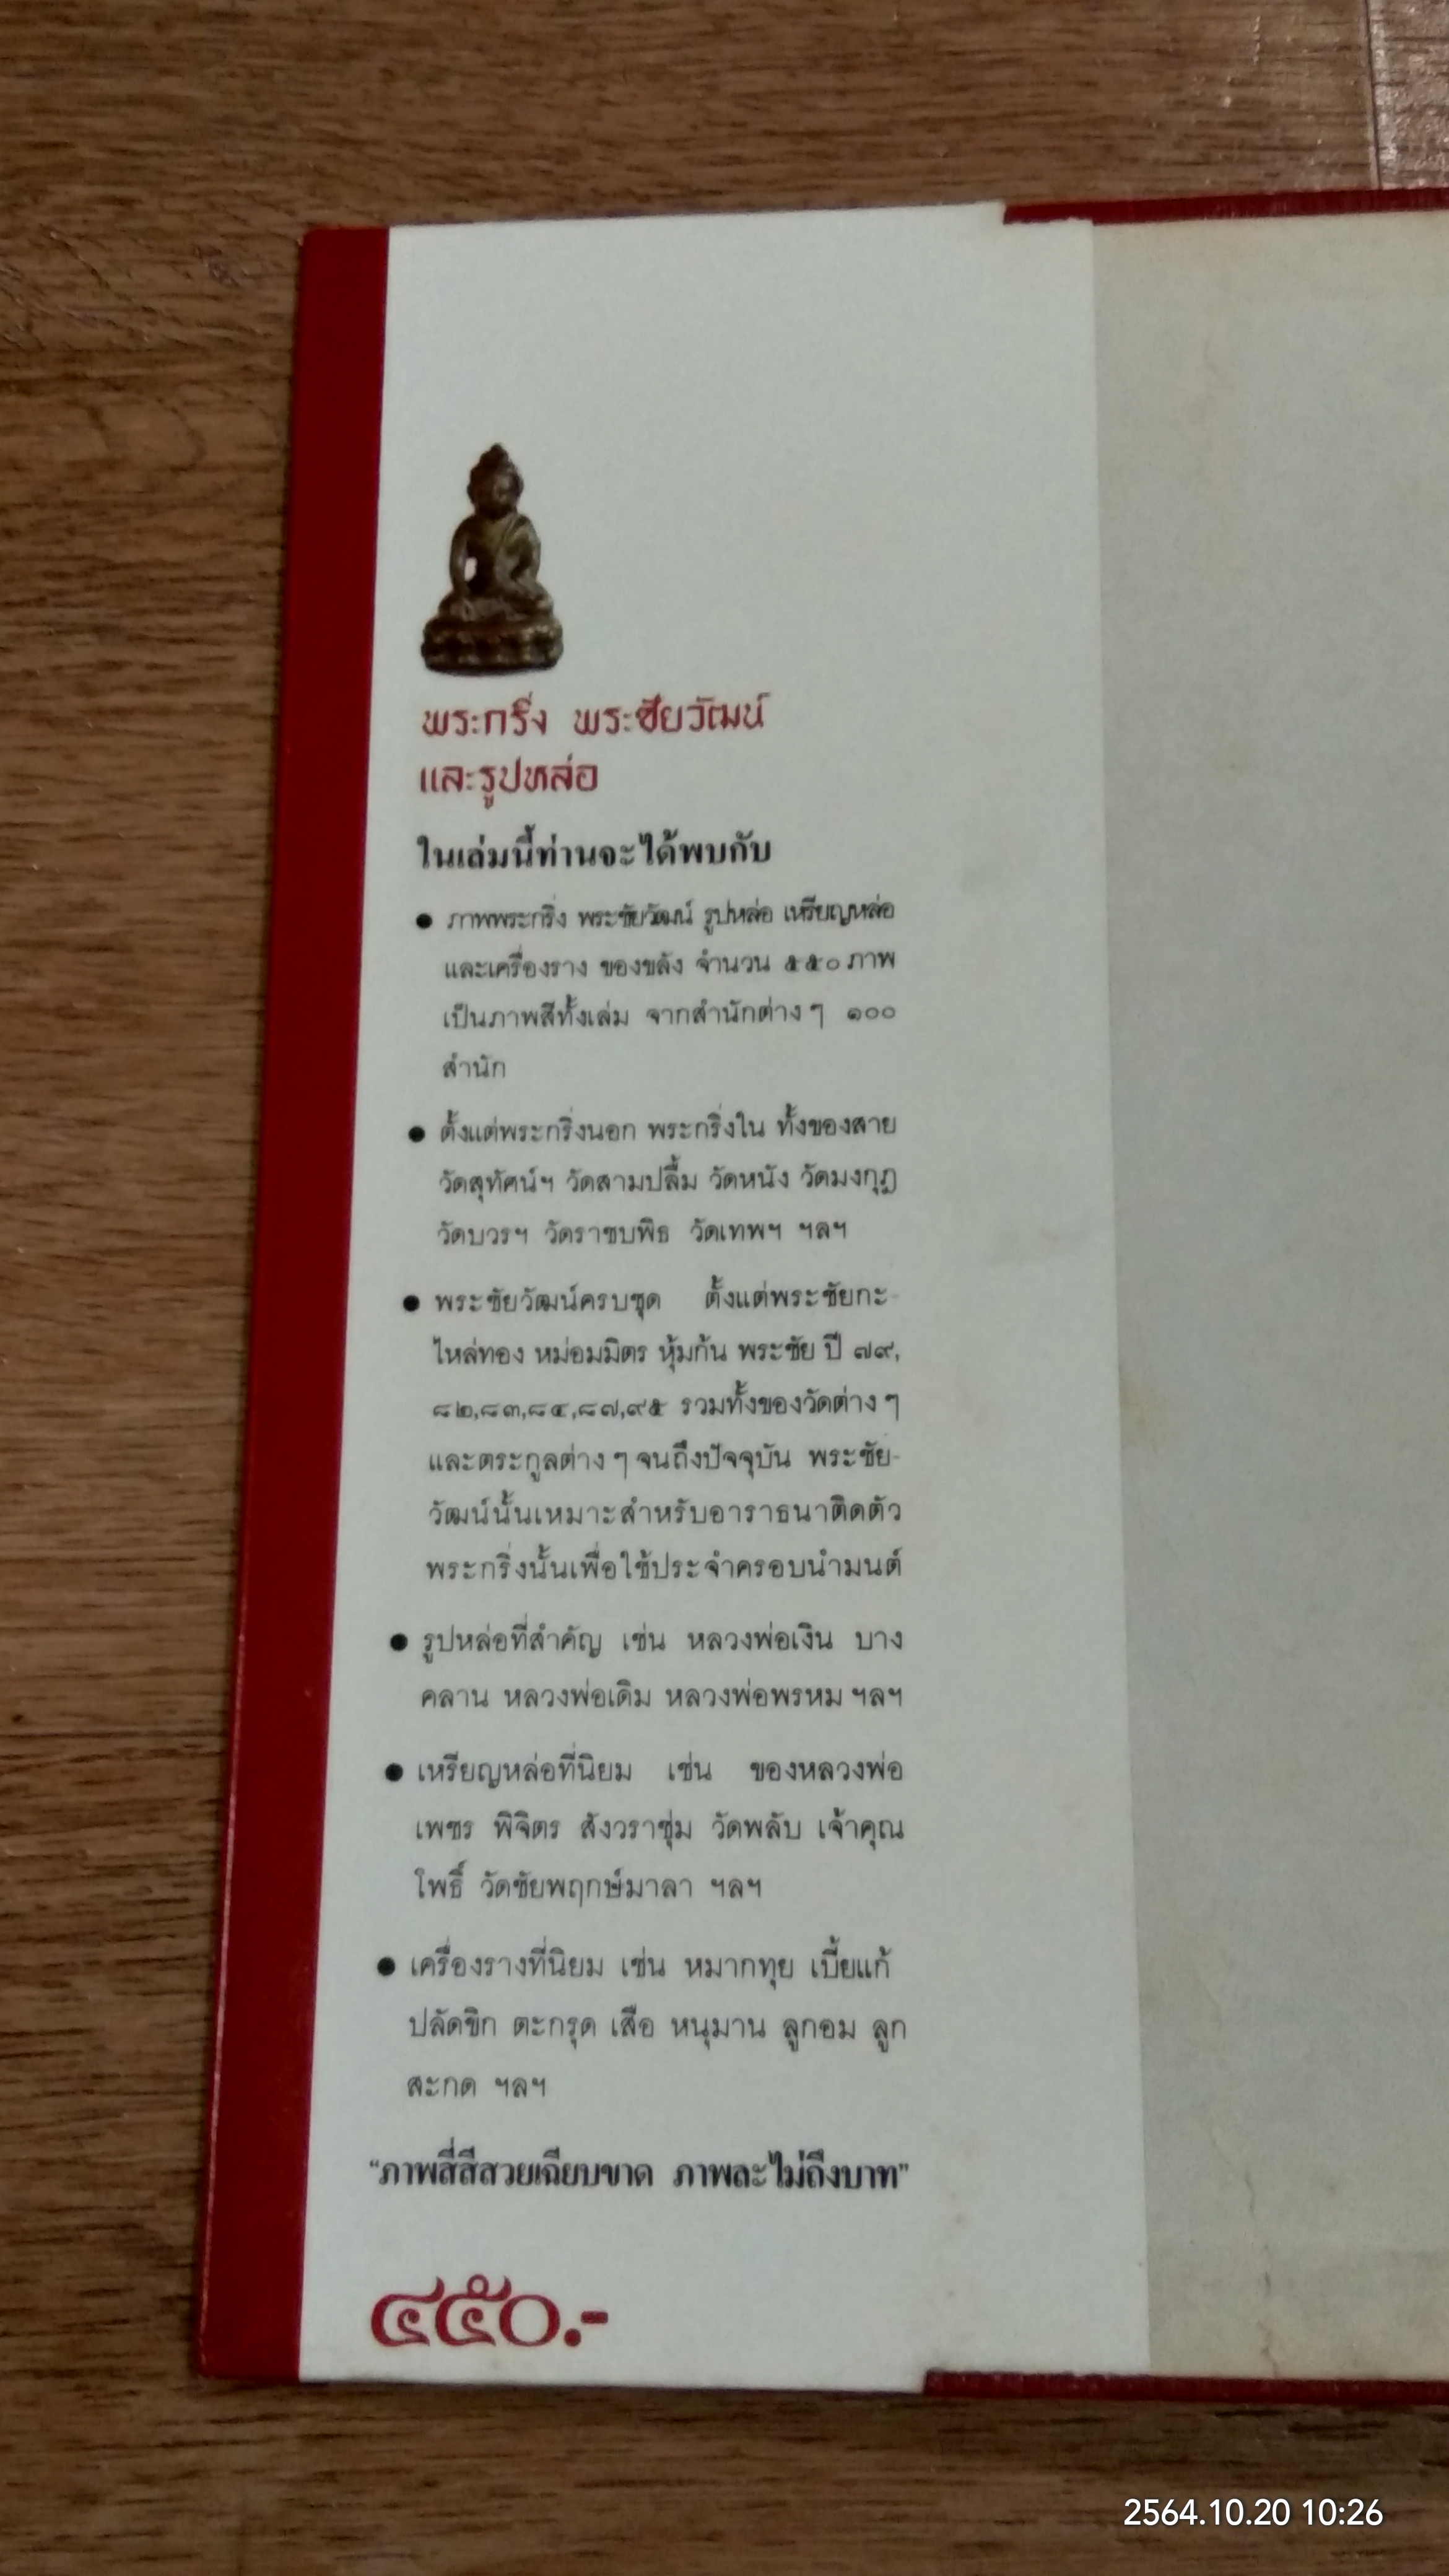 พระกริ่ง พระชัยวัฒน์
และรูปหล่อ
ในเล่มนี้ท่านจะได้พบกับ
● ภาพพระกริ่ง พระชัยวัฒน์ รูปหล่อ เหรียญหล่อ
และเครื่องราง ของขลัง จำนวน ๕๕๐ ภาพ
เป็นภาพสีทั้งเล่ม จากสำนักต่าง ๆ ๑๐๐
สำนัก
● ตั้งแต่พระกริ่งนอก พระกริ่งใน ทั้งของสาย
วัดสุทัศน์ฯ วัดสามปลื้ม วัดหนัง วัดมงกุฎ
วัดบวรฯ วัดราชบพิธ วัดเทพฯ ฯลฯ
● พระชัยวัฒน์ครบชุด ตั้งแต่พระชัยกะ-
ไหล่ทอง หม่อมมิตร หุ้มก้น พระชัย ปี ๗๙,
๘๒,๘๓,๘๔,๘๗,๙๕ รวมทั้งของวัดต่าง ๆ
และตระกูลต่าง ๆ จนถึงปัจจุบัน พระชัย-
วัฒน์นั้นเหมาะสำหรับอาราธนาติดตัว
พระกริ่งนั้นเพื่อใช้ประจำครอบน้ำมนต์
● รูปหล่อที่สำคัญ เช่น หลวงพ่อเงิน บาง
คลาน หลวงพ่อเดิม หลวงพ่อพรหม ฯลฯ
● เหรียญหล่อที่นิยม เช่น ของหลวงพ่อ
เพชร พิจิตร สังวราชุ่ม วัดพลับ เจ้าคุณ
โพธิ์ วัดชัยพฤกษ์มาลา ฯลฯ
● เครื่องรางที่นิยม เช่น หมากทุย เบี้ยแก้
ปลัดขิก ตะกรุด เสือ หนุมาน ลูกอม ลูก
สะกด ฯลฯ
“ภาพสี่สีสวยเฉียบขาด ภาพละไม่ถึงบาท”
๔๕๐.-
2564.10.20 10:26